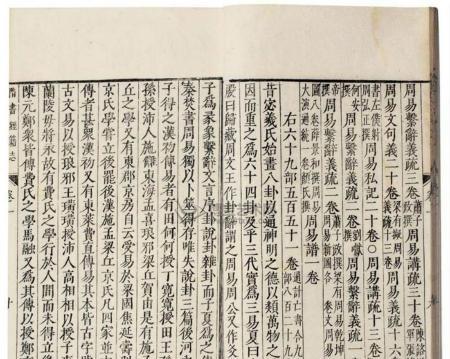 周易繫辭義疏
周易文句義二十卷
周易私記二十卷〇周易講疏十三卷
周易繫辭義疏二卷
大演通統一卷 周易譜一卷
右六十九部五百五十一卷
昔宓羲氏始畫八卦以通神明之德以類萬物之
因而重之為六十四卦及乎三代實為三易夏曰
殷曰歸藏周文王作卦辭謂之周易周公又作爻
子為彖象繫辭文言序卦說卦雜卦而子夏為之
秦焚書周易獨以卜筮得存唯失說卦三篇後河
子得之漢初傳易者有田何何授丁寬寬授田王
孫授沛人施讎東海孟喜琅邪梁丘賀由是有施
丘之學又有東郡京房自云受易於梁國焦延壽
京氏學嘗立後罷後漢施孟梁丘京氏凡四家並
傳者甚眾漢初又有東萊費直傳易其本皆古字
古文易以授琅邪王璜璜授沛人高相相以授子
蘭陵毋將永故有費氏之學行於人間而未得立
陳元鄭眾皆傳費氏之學馬融又為其傳以授鄭
隋書經籍志 卷一